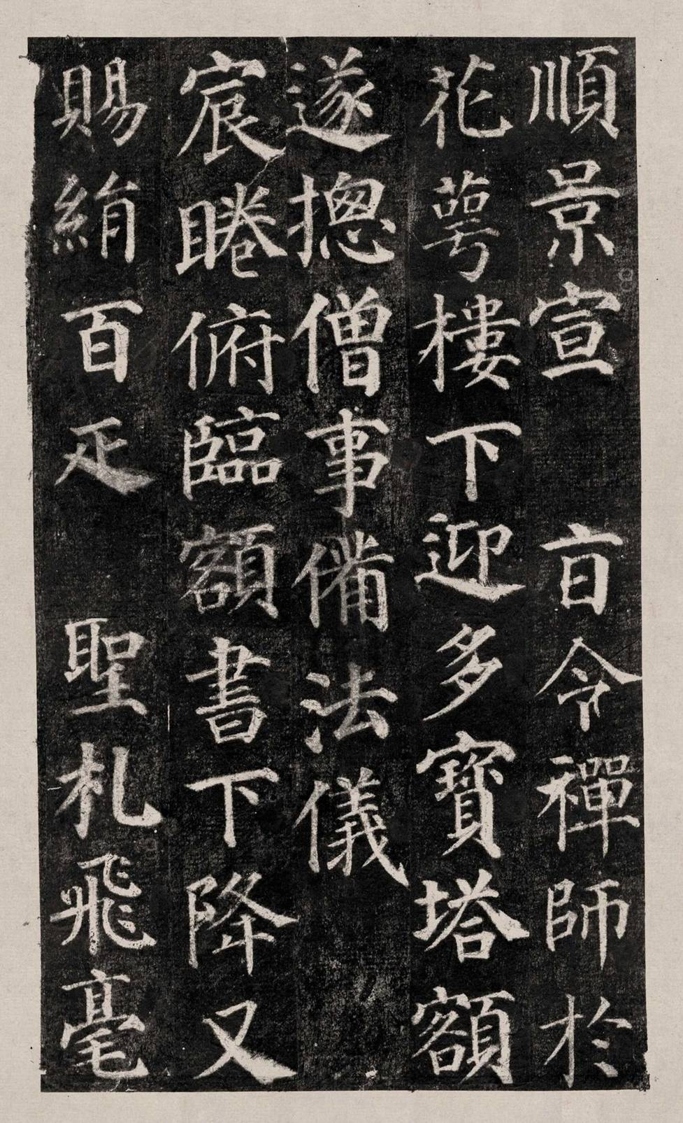 順景宣　𠅘令禪師於
花萼樓下迎多寶塔額
遂摠僧事備法儀
宸睠俯臨額書下降又
賜絹百疋　聖札飛毫